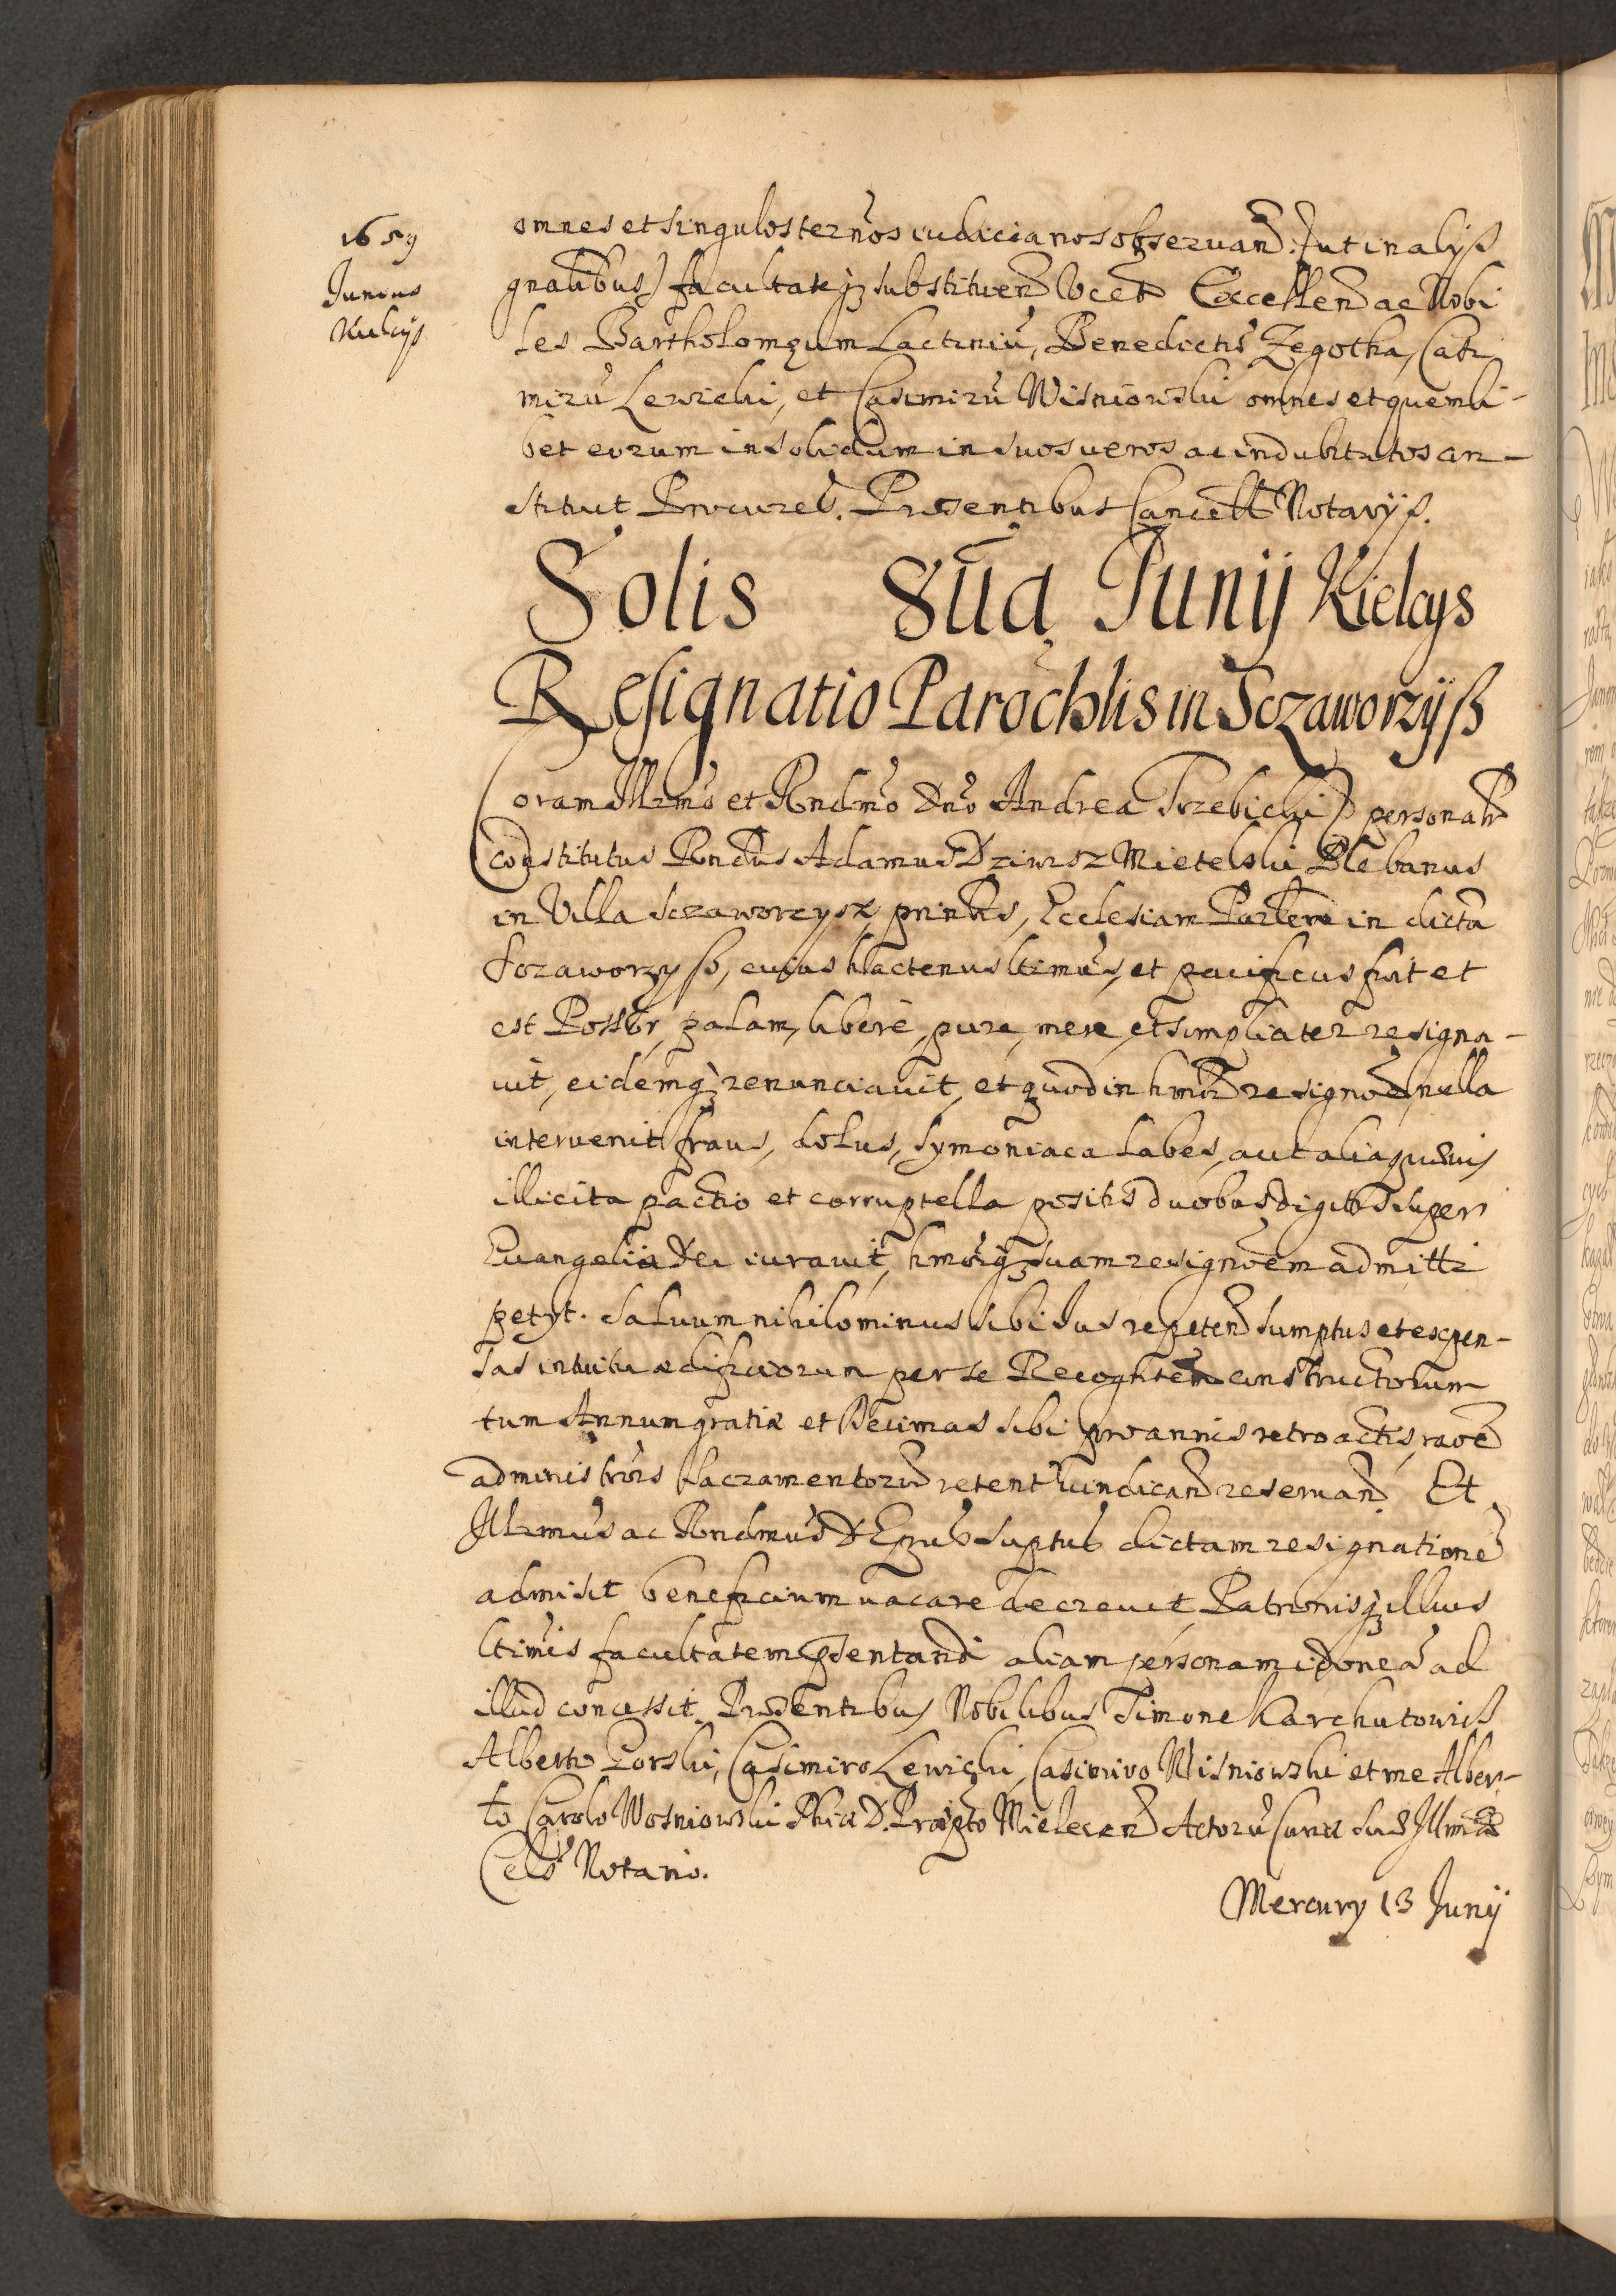 1659
Junius
Kielcijs
omnes et singulos termos iudicianos observand. (ut in alijs
gnalibus) facultateqz substituen Excellen ac Nobi
les Bartholomęum Lactiniu, Benedictu Zegotka, Casi
miru Lewicki, et Casimiru Wisniowski omnes et quemli-
bet eorum in solidum in suos veros ac indubitatos con-
stituit Procures. Presentibus Cancell Notarijs.
Solis 8ua Junij Kielcijs
Resignatio Parochlis in Sczaworzijß
Coram Illrmo et Rndmo Dno Andrea Trzebicki personalr
constitutus Rndus Adamus Dziwisz Mietelski Plebanus
in Villa Sczaworzysz, Ecclesiam Parlem in dicta
Sczaworzysz, cuius hactenus ltimus, et pacificus fuit et
est Possor, palam, libere, pure, mere, et simpliciter resigna-
vit, eidemqz renunciavit, et quod in hmoi resignoe nulla
intervenit fraus, dolus, symoniaca labes, aut alia quavis
illicita pactio et corruptella positis duobus digitis super
Evangelia Dei iuravit, hmoiqz suam resignoem admitti
petyt. Salvum nihilominus sibi Jus repeten sumptus et expen-
sas intuitu ædificiorum per se Recognten constructorum
tum Annum gratiæ et Decimas sibi pro annis retroactis, raoe
administrois Sacramentoru retent vindican reservan Et
Illrmus ac Rndmus D Epus suptus dictam resignatione
admisit beneficium vacare decrevit, Patronisqz illius
ltimis facultatem psentandi aliam personam idonea ad
illud concessit. Presentibus Nobilibus Simone Karchutowis
Alberto Gorski, Casimiro Lewicki, Casimiro Wisniowski et me Alber-
to Carolo Wosniowski Phiæ D. Præpto Mielecen Actoru Curiæ Suæ Illmæ
Cels Notario.
Mercury 13 Junij